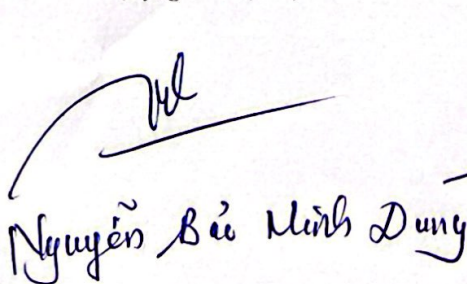 Nguyễn Bảo Minh Dung